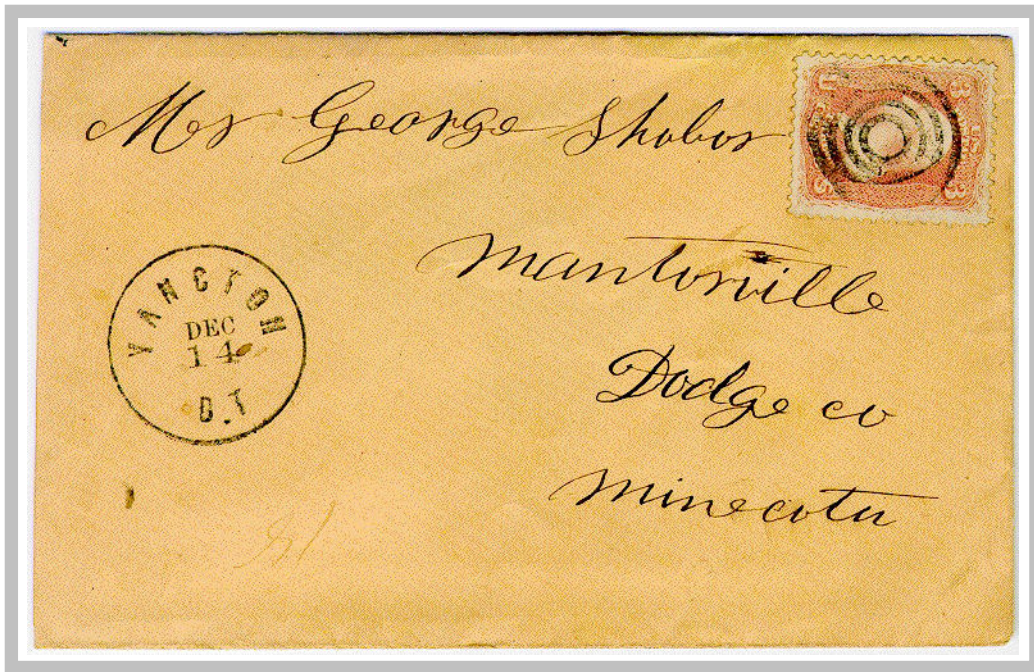 Mr George Shobor
Mantorville
Dodge co
Minecotu
YANCTON
DEC
14
D.T
U S
3 3